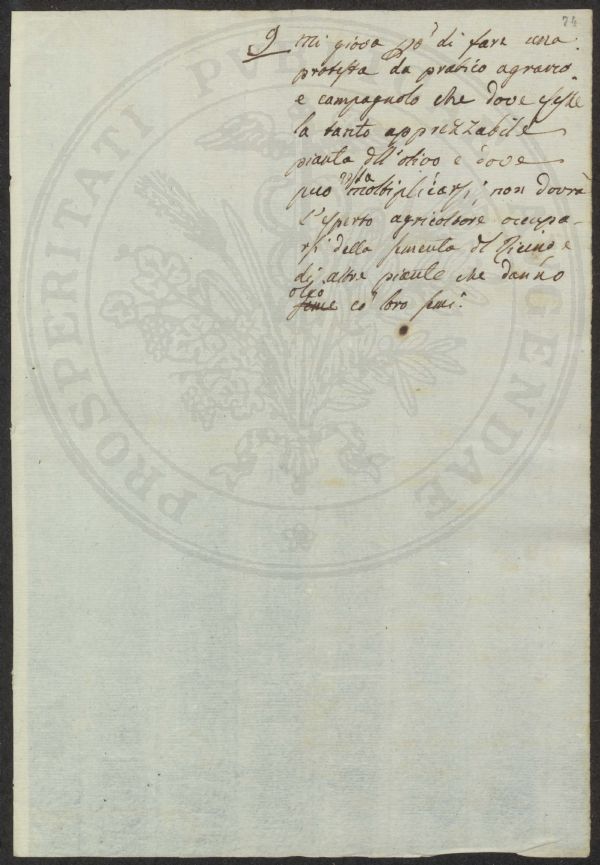 74
9 Mi giova però di fare una
protesta da pratico agrario
e campagnolo che dove esiste
la tanto apprezzabile
pianta dll'olivo e dove
può moltiplicarsi; non dovrà
l'esperto agricoltore occupa-
rsi della sementa del Ricino e
di altre piante che danno
olio
seme co' loro semi.
PROSPERITATI PUBLICAE AUGENDAE